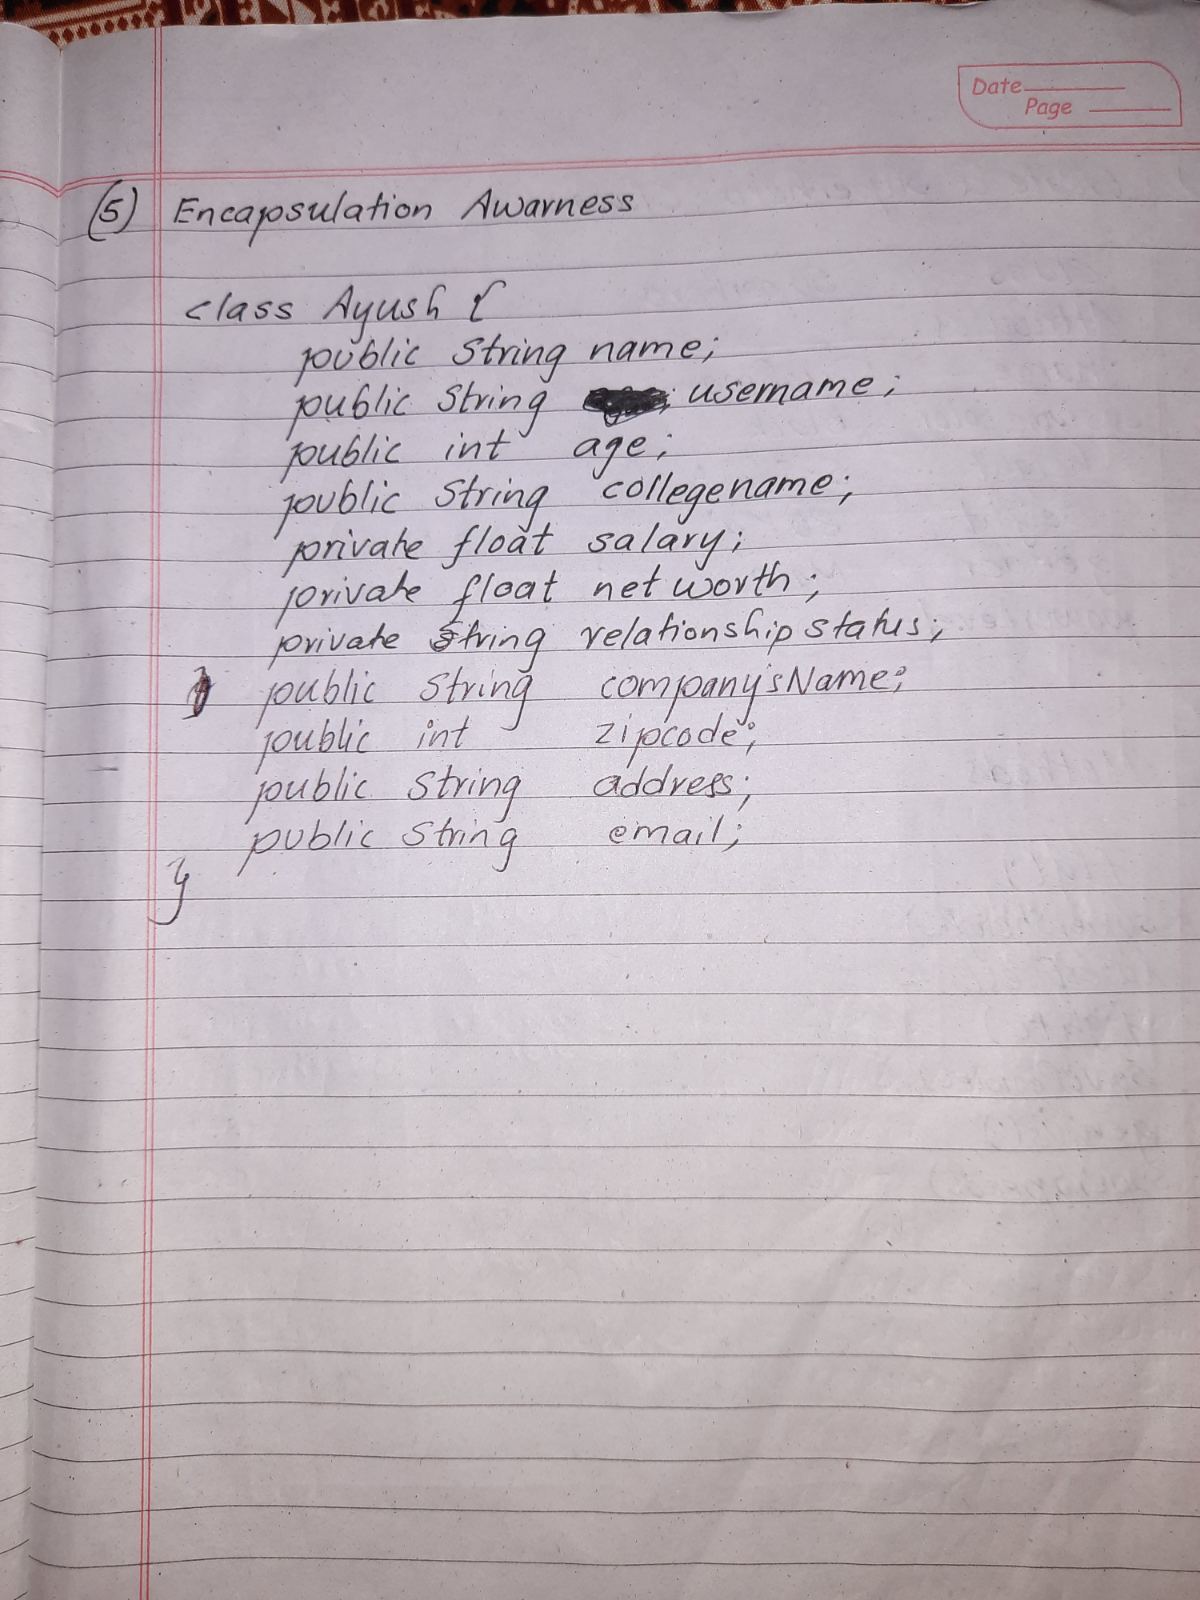 Date
Page
(5) Encapsulation Awarness
class Ayush {
public String name;
public String username;
public int age;
public String collegename;
private float salary;
private float net worth;
private String relationship status;
public String company'sName;
public int zipcode;
public String address;
public String email;
}